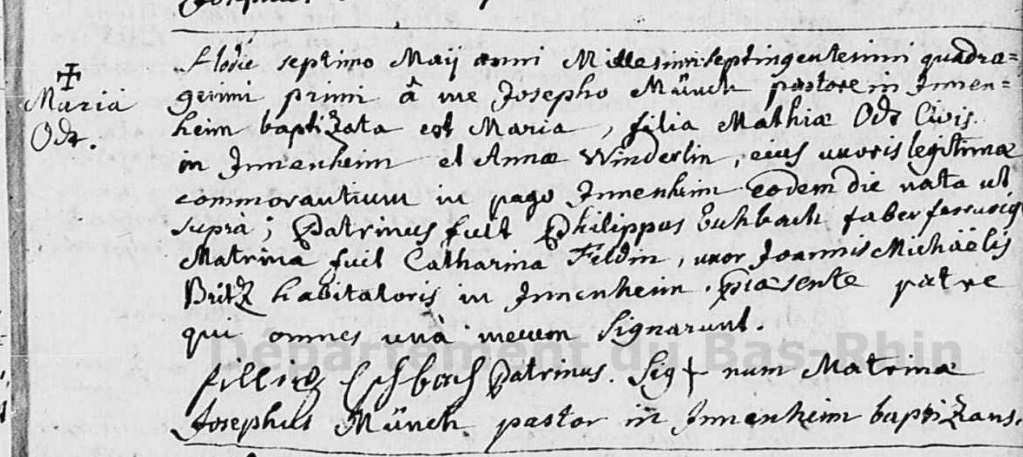 Maria
Odt.
Hodie septimo Maij anni Millesimi septingentesimi quadra=
gesimi primi â me Josepho Münch pastore in Innen=
heim baptizata est Maria, filia Mathiæ Odt Civis
in Innenheim et Annæ Winderlin, eius uxoris legitimæ
commorantium in pago Innenheim eodem die nata ut
supra; Patrinus fuit Philippus Eschbach faber ferrarius
Matrina fuit Catharina Feldin, uxor Joannis Michaëlis
Britz habitatoris in Innenheim. præsente patre
qui omnes unà mecum signarunt.
fillipß Eschbach Patrinus. Sig + num Matrinæ
Josephus Münch pastor in Innenheim baptizans.
Département du Bas-Rhin